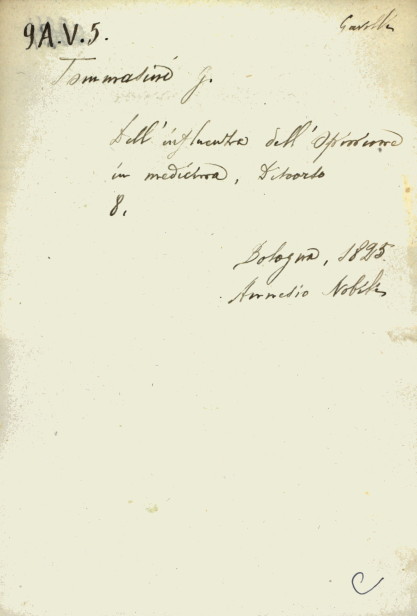 9A.V.5.
Tommasini G.
Dell'influenza dell'opinione
in medicina, Discorso
8.
Bologna, 1825.
Annesio Nobili
C